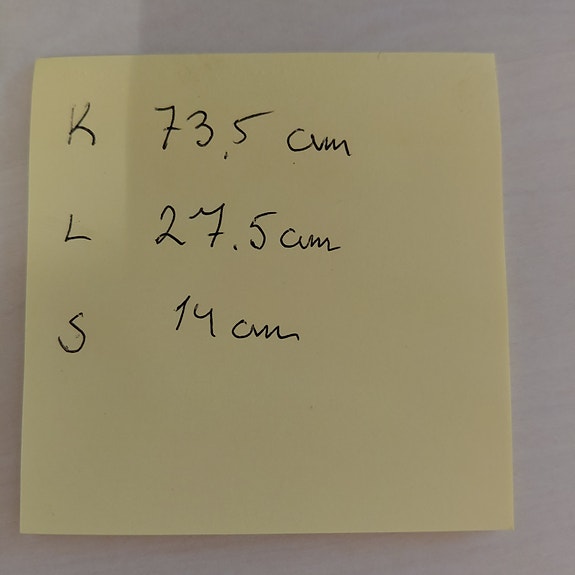 K 73.5 cm
L 27.5 cm
S 14 cm